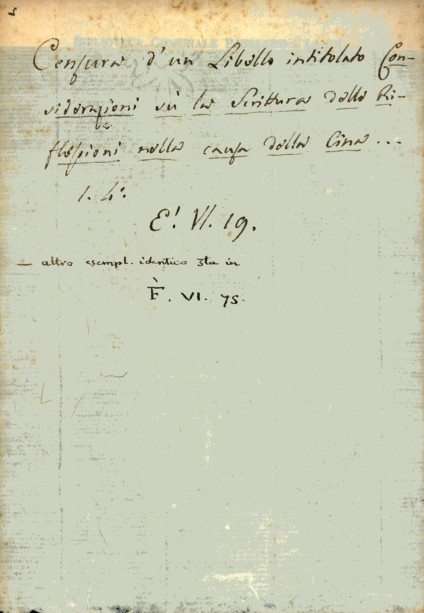 Censura d'un Libello intitolato Con-
siderazioni sù la Scrittura delle Ri-
flessioni nella causa della Cina...
1. 4°.
E! VI. 19.
— altro esempl. identico sta in
F. VI. 75.